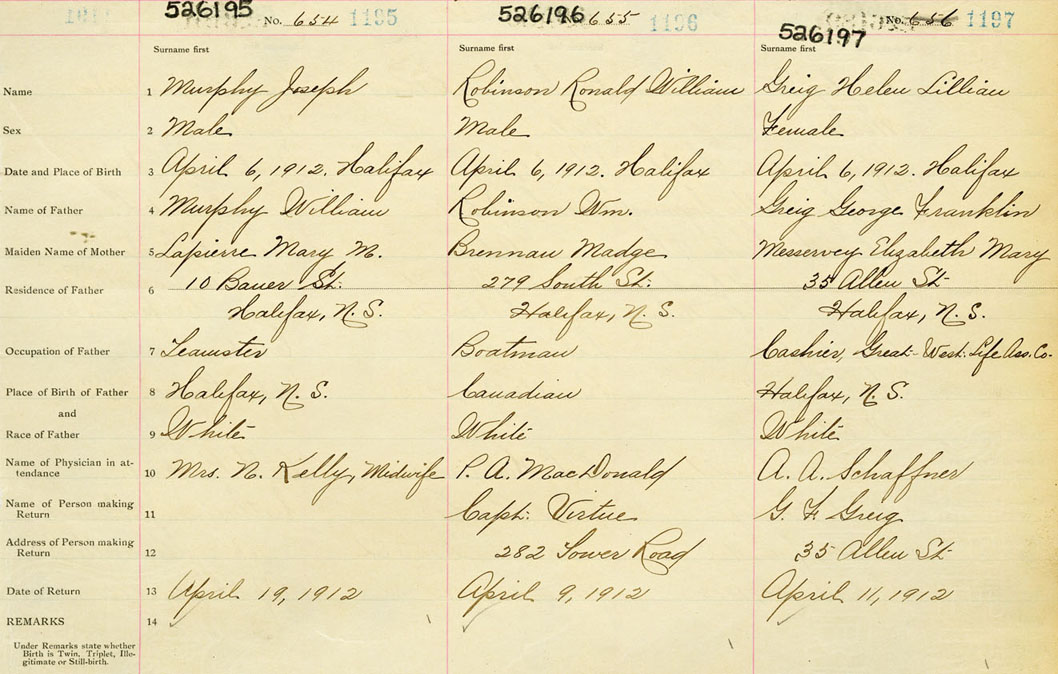 526195 No. 654 1195
526196 655 1196
526197 No. 656 1197
Surname first Surname first Surname first
Name 1 Murphy Joseph Robinson Ronald William Greig Helen Lillian
Sex 2 Male Male Female
Date and Place of Birth 3 April 6, 1912. Halifax April 6, 1912. Halifax April 6, 1912. Halifax
Name of Father 4 Murphy William Robinson Wm. Greig George Franklin
Maiden Name of Mother 5 Lapierre Mary M. Brennan Madge Messervey Elizabeth Mary
Residence of Father 6 10 Bauer St. 279 South St. 35 Allen St
Halifax, N. S. Halifax, N. S. Halifax, N. S.
Occupation of Father 7 Teamster Boatman Cashier, Great-West. Life Ass. Co.
Place of Birth of Father 8 Halifax, N. S. Canadian Halifax, N. S.
and
Race of Father 9 White White White
Name of Physician in at-
tendance 10 Mrs. N. Kelly, Midwife P. A. MacDonald A. A. Schaffner
Name of Person making
Return 11 Capt. Virtue G. F. Greig
Address of Person making
Return 12 282 Tower Road 35 Allen St
Date of Return 13 April 19, 1912 April 9, 1912 April 11, 1912
REMARKS 14
Under Remarks state whether
Birth is Twin, Triplet, Ille-
gitimate or Still-birth.